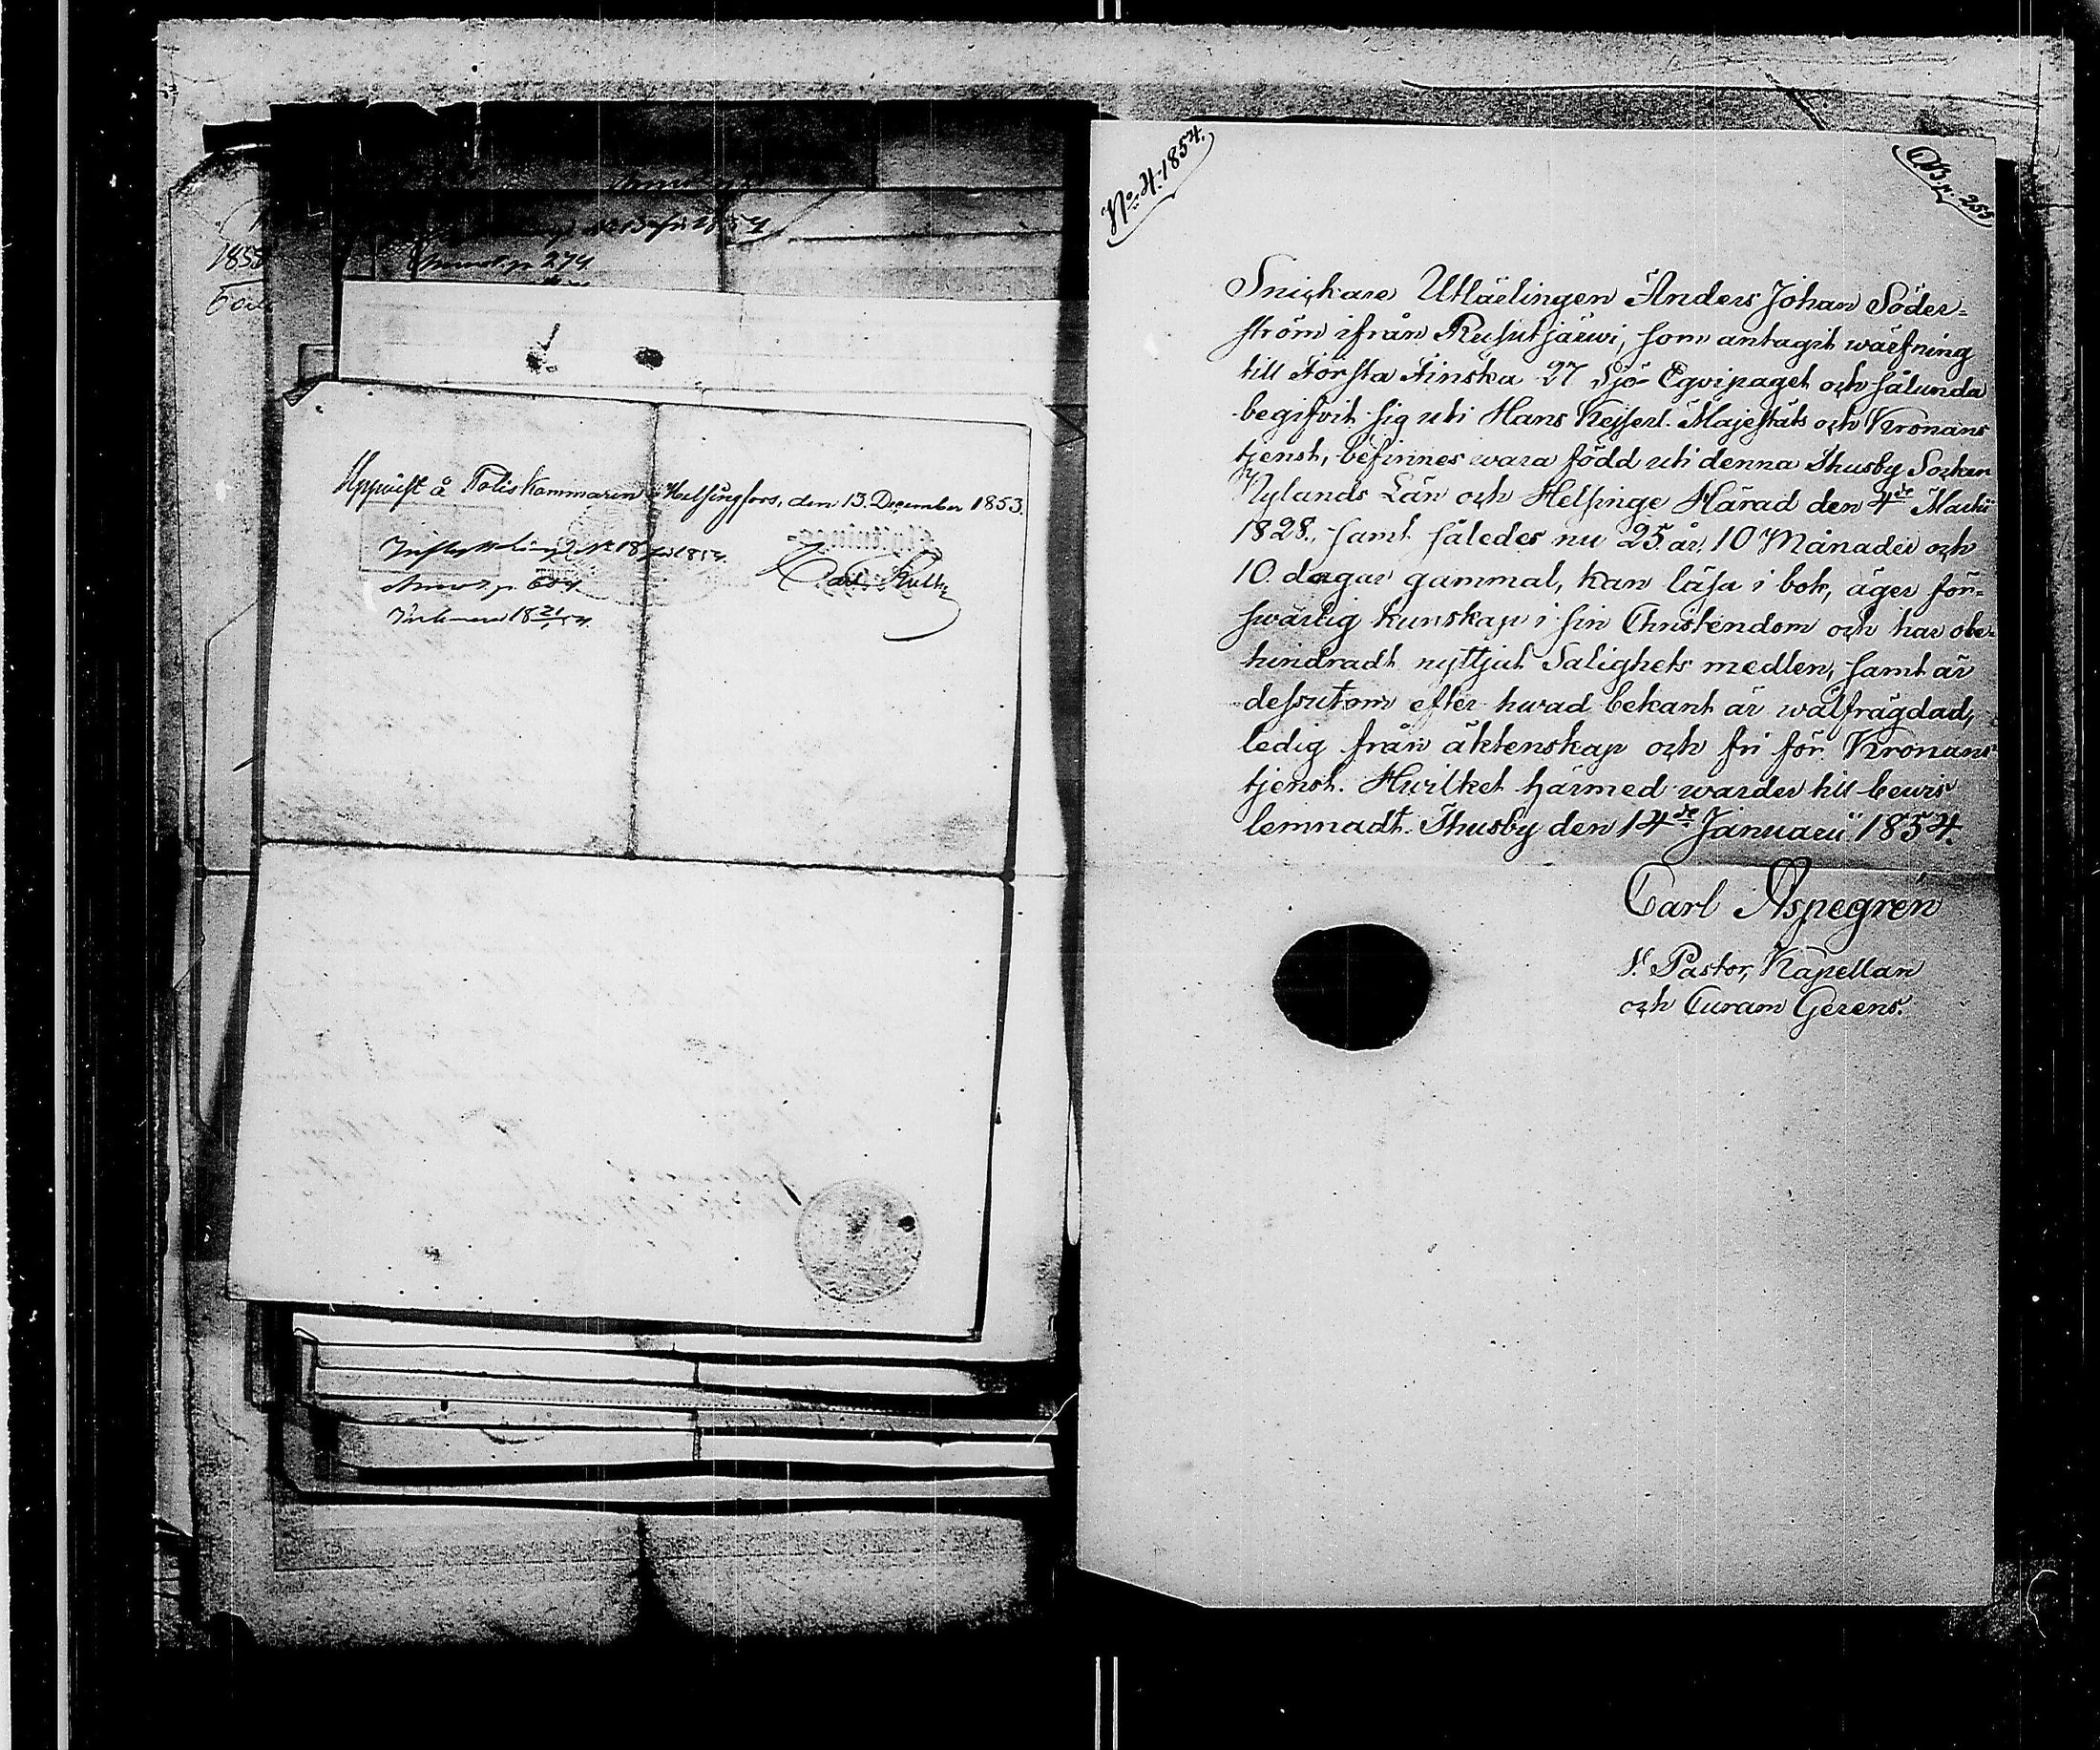 Uppvist å Poliskammaren i Helsingfors, den 13. December 1853.
Inflyttning № 18 för 1854.
Carl
№ 4. 1854.
Snickare Utlärlingen Anders Johan Söder-
ström ifrån Rusutjärwi, som antagit wärfning
till Första Finska 27 Sjö-Eqvipaget och sålunda
begifvit sig uti Hans Kejserl. Majestäts och Kronans
tjenst, befinnes wara född uti denna Thusby Sockn
Nylands Län och Helsinge Härad den 4de Martii
1828., samt således nu 25. år, 10 Månader och
10. dagar gammal, kan läsa i bok, äger för-
swarlig kunskap i sin Christendom och har obe-
hindradt nyttjat Salighets medlen, samt är
dessutom efter hwad bekant är wälfrägdad,
ledig från äktenskap och fri för Kronans
tjenst. Hwilket härmed warder till bewis
lemnadt. Thusby den 14de Januarii 1854.
Carl Aspegrén
V. Pastor, Kapellan
och Curam Gerens.